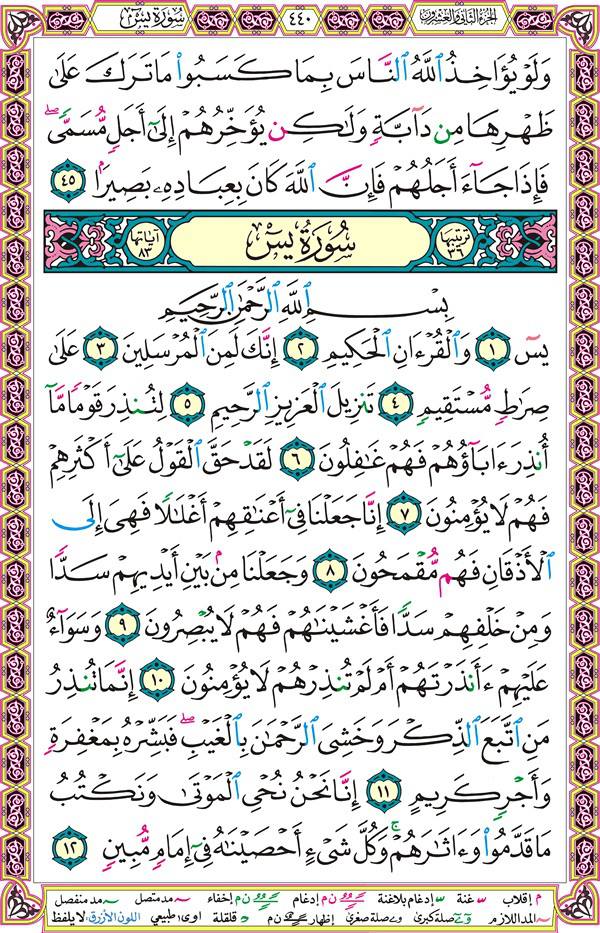 سُورَةُ يسٓ
٤٤٠
الجزء الثاني والعشرون
وَلَوْ يُؤَاخِذُ ٱللَّهُ ٱلنَّاسَ بِمَا كَسَبُوا۟ مَا تَرَكَ عَلَىٰ
ظَهْرِهَا مِن دَآبَّةٍ وَلَٰكِن يُؤَخِّرُهُمْ إِلَىٰٓ أَجَلٍ مُّسَمًّى ۖ
فَإِذَا جَآءَ أَجَلُهُمْ فَإِنَّ ٱللَّهَ كَانَ بِعِبَادِهِۦ بَصِيرًۢا ٤٥
ترتيبها ٣٦ سُورَةُ يسٓ آياتها ٨٣
بِسْمِ ٱللَّهِ ٱلرَّحْمَٰنِ ٱلرَّحِيمِ
يسٓ ١ وَٱلْقُرْءَانِ ٱلْحَكِيمِ ٢ إِنَّكَ لَمِنَ ٱلْمُرْسَلِينَ ٣ عَلَىٰ
صِرَٰطٍ مُّسْتَقِيمٍ ٤ تَنزِيلَ ٱلْعَزِيزِ ٱلرَّحِيمِ ٥ لِتُنذِرَ قَوْمًا مَّآ
أُنذِرَ ءَابَآؤُهُمْ فَهُمْ غَٰفِلُونَ ٦ لَقَدْ حَقَّ ٱلْقَوْلُ عَلَىٰٓ أَكْثَرِهِمْ
فَهُمْ لَا يُؤْمِنُونَ ٧ إِنَّا جَعَلْنَا فِىٓ أَعْنَٰقِهِمْ أَغْلَٰلًا فَهِىَ إِلَى
ٱلْأَذْقَانِ فَهُم مُّقْمَحُونَ ٨ وَجَعَلْنَا مِنۢ بَيْنِ أَيْدِيهِمْ سَدًّا
وَمِنْ خَلْفِهِمْ سَدًّا فَأَغْشَيْنَٰهُمْ فَهُمْ لَا يُبْصِرُونَ ٩ وَسَوَآءٌ
عَلَيْهِمْ ءَأَنذَرْتَهُمْ أَمْ لَمْ تُنذِرْهُمْ لَا يُؤْمِنُونَ ١٠ إِنَّمَا تُنذِرُ
مَنِ ٱتَّبَعَ ٱلذِّكْرَ وَخَشِىَ ٱلرَّحْمَٰنَ بِٱلْغَيْبِ ۖ فَبَشِّرْهُ بِمَغْفِرَةٍ
وَأَجْرٍ كَرِيمٍ ١١ إِنَّا نَحْنُ نُحْىِ ٱلْمَوْتَىٰ وَنَكْتُبُ
مَا قَدَّمُوا۟ وَءَاثَٰرَهُمْ ۚ وَكُلَّ شَىْءٍ أَحْصَيْنَٰهُ فِىٓ إِمَامٍ مُّبِينٍ ١٢
م إقلاب غنة إدغام بلاغنة ن م إدغام ن م إخفاء مد متصل مد منفصل
المد اللازم صلة كبرى صلة صغرى إظهار ن م قلقلة اوى: طبيعي اللون الأزرق: لا يلفظ